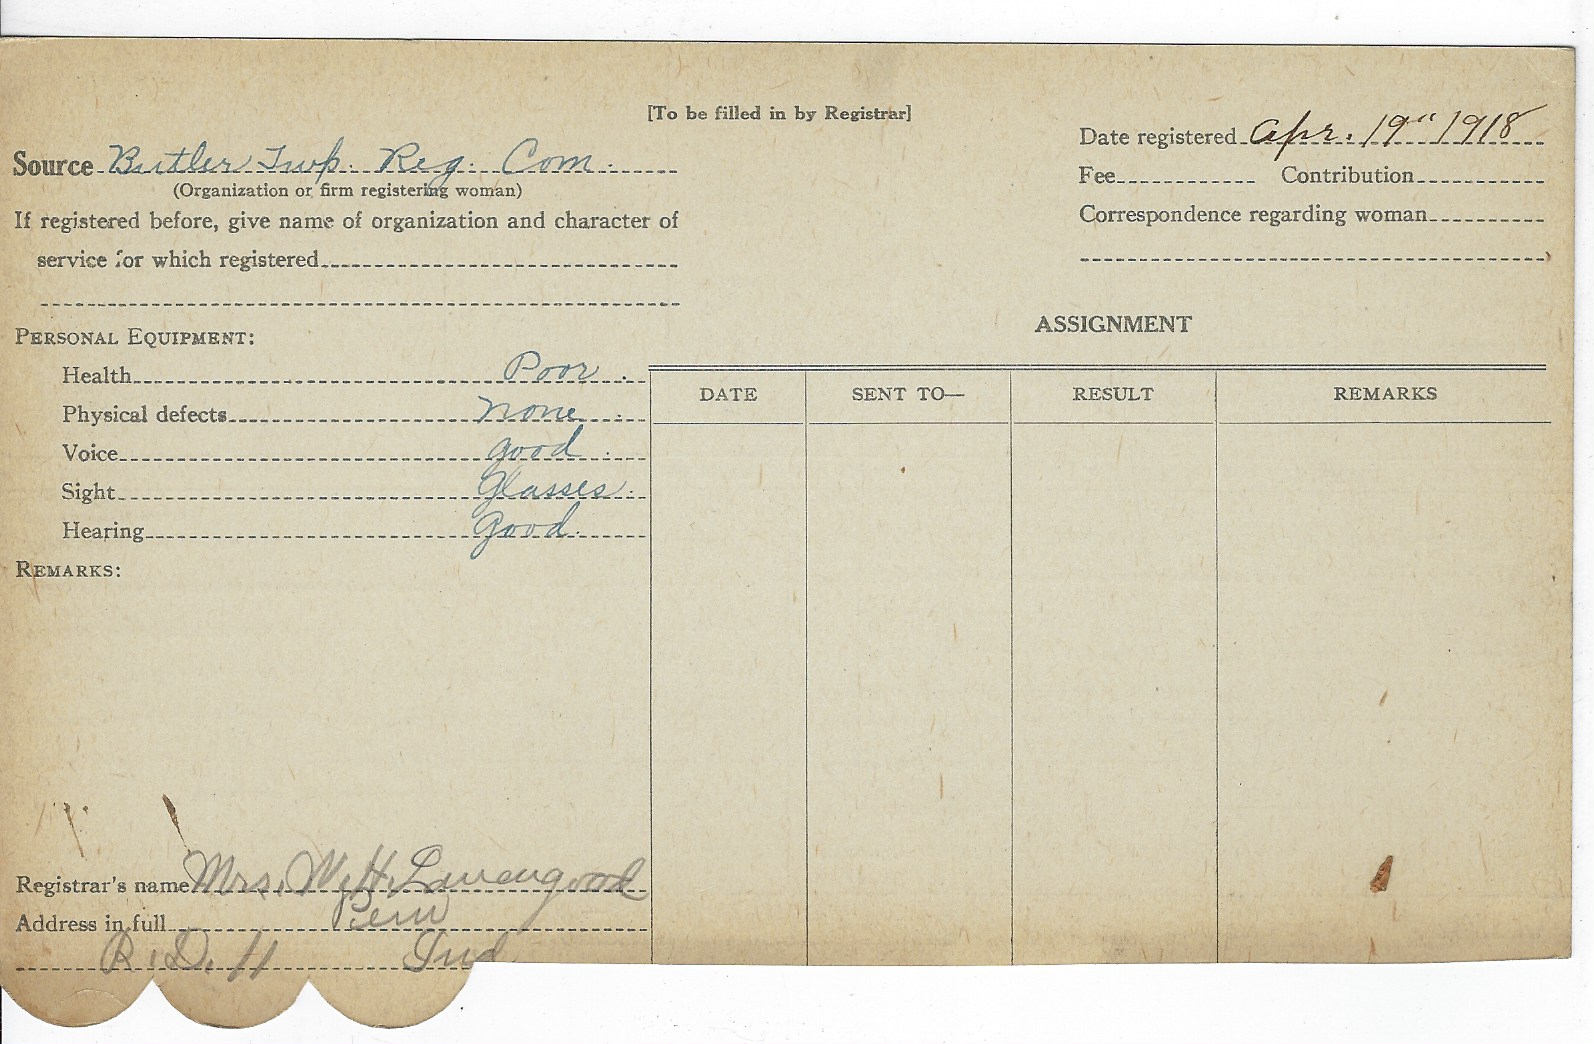 [To be filled in by Registrar]
Date registered Apr. 19" 1918
Source Butler Twp. Reg. Com.
(Organization or firm registering woman)
Fee Contribution
If registered before, give name of organization and character of
Correspondence regarding woman
service for which registered
ASSIGNMENT
PERSONAL EQUIPMENT:
Health Poor.
Physical defects none.
Voice good.
Sight Glasses.
Hearing Good.
DATE SENT TO— RESULT REMARKS
REMARKS:
Registrar's name Mrs. W. H. Lavengood
Address in full Peru
R. D. 11 Ind